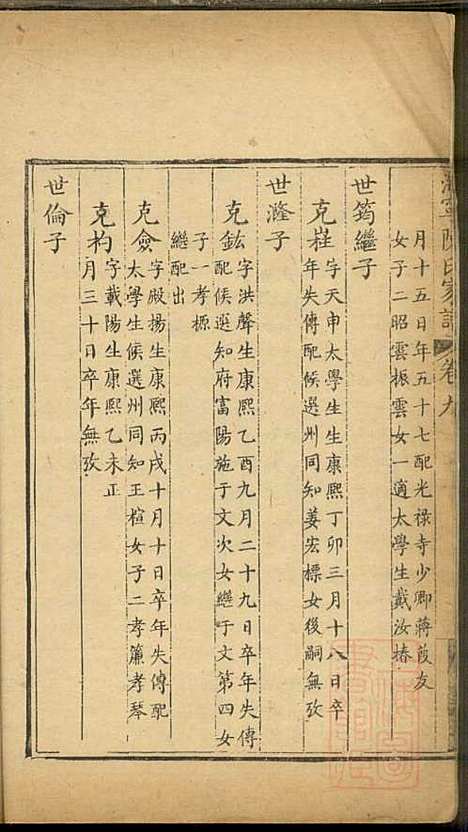 海寧陳氏家譜 卷九
月十五日年五十七配光祿寺少卿蔣葭友
女子二昭雲振雲女一適太學生戴汝椿
世筠繼子
克𡸁字天申太學生生康熙丁卯三月十八日卒
年失傳配候選州同知姜宏標女後嗣無攷
世㴞子
克鈜字洪聲生康熙乙酉九月二十九日卒年失傳
配候選知府富陽施于文次女繼于文第四女
子一孝標
繼配出
克僉字殿揚生康熙丙戌十月十日卒年失傳配
太學生候選州同知王楦女子二孝簾孝琴
克杓字載陽生康熙乙未正
月三十日卒年無攷
世倫子